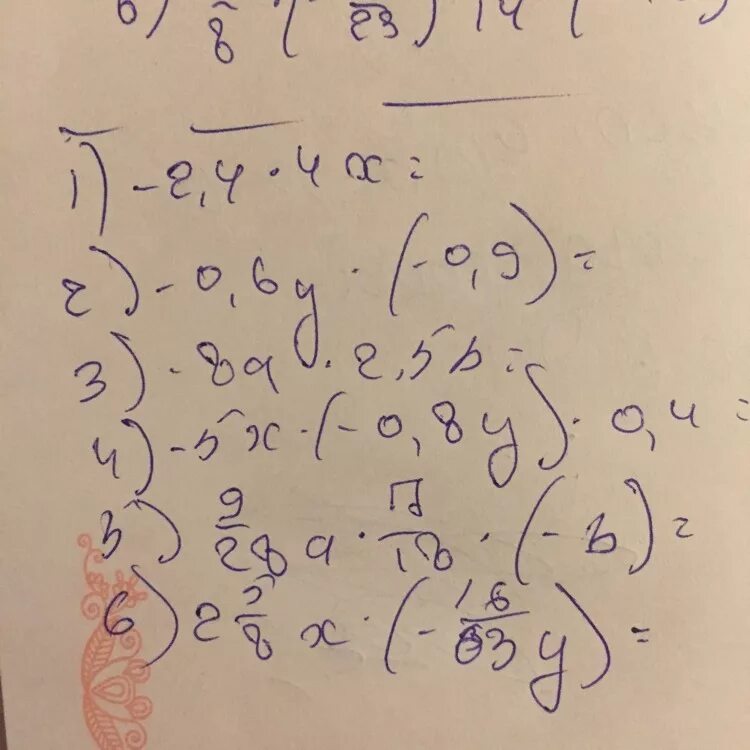 1) -2,4 · 4x =
2) -0,6y · (-0,9) =
3) -8a · 2,5b =
4) -5x · (-0,8y) · 0,4 =
5) 9/28 a · 17/18 · (-b) =
6) 2 5/8 x · (- 16/63 y) =